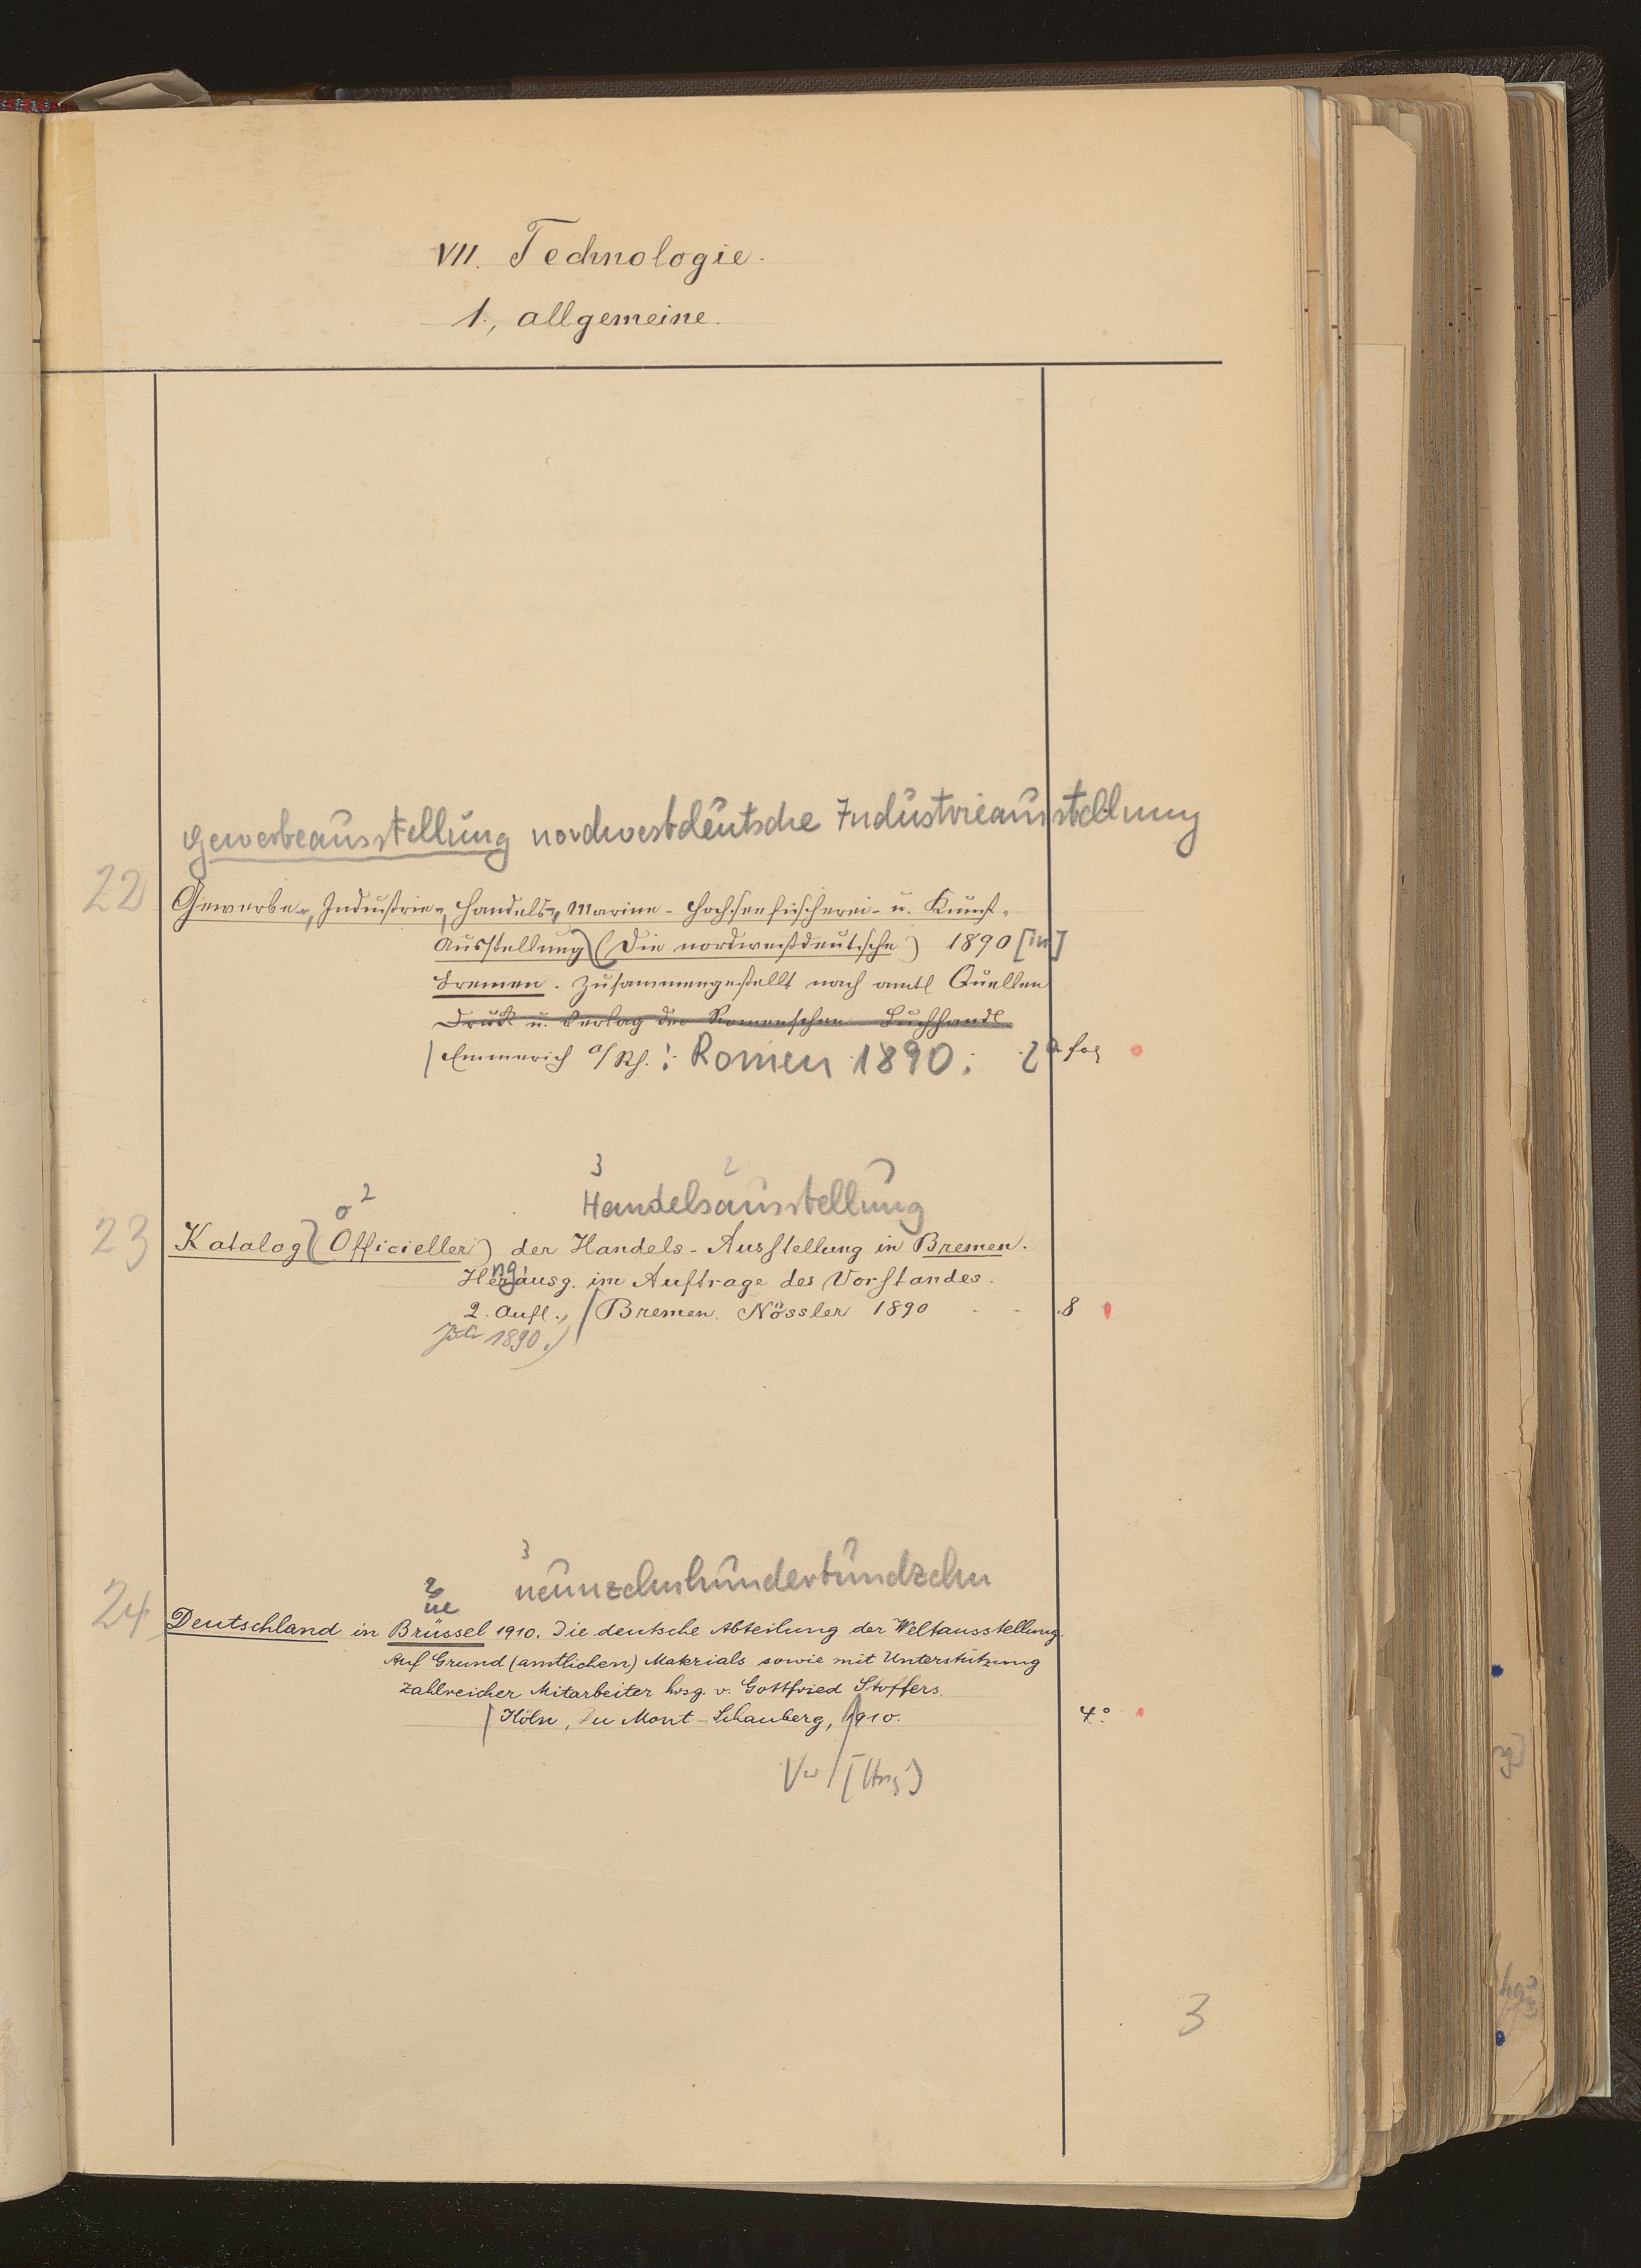 VII. Technologie.
1., allgemeine.
Gewerbeausstellung nordwestdeutsche Industrieausstellung
22 Gewerbe-, Industrie-, Handels-, Marine- Hochseefischerei- u. Kunst-
Ausstellung (Die nordwestdeutsche) 1890 [in]
Bremen. Zusammengestellt nach amtl Quellen
Druck u. Verlag der Romenschen Buchhandl.
Emmerich a/Rh.: Romen 1890. fol
3 2
Handelsausstellung
o 2
23 Katalog (Officieller) der Handels-Ausstellung in Bremen.
Herausg. im Auftrage des Vorstandes.
2. Aufl., Bremen. Nössler 1890 8
1890.
3
neunzehnhundertundzehn
2
ue
24 Deutschland in Brüssel 1910. Die deutsche Abteilung der Weltausstellung.
Auf Grund (amtlichen) Materials sowie mit Unterstützung
zahlreicher Mitarbeiter hrsg. v. Gottfried Stoffers.
Köln, Du Mont-Schauberg, 1910. 4°
[Hrsg]
3